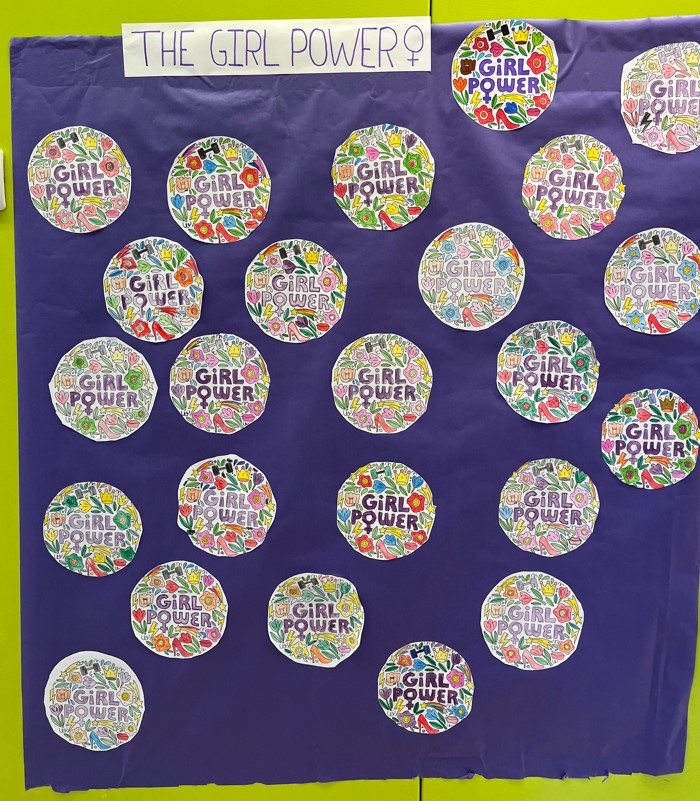 THE GIRL POWER♀
GiRL
POWER
GiRL
POWE
GiRL
POWER
GiRL
POWER
GiRL
POWER
GiRL
POWER
GiRL
POWER
GiRL
POWER
GiRL
POWER
GiRL
POWER
GiRL
POWER
GiRL
POWER
GiRL
POWER
GiRL
POWER
GiRL
POWER
GiRL
POWER
GiRL
POWER
GiRL
POWER
GiRL
POWER
GiRL
POWER
GiRL
POWER
GiRL
POWER
GiRL
POWER
GiRL
POWER